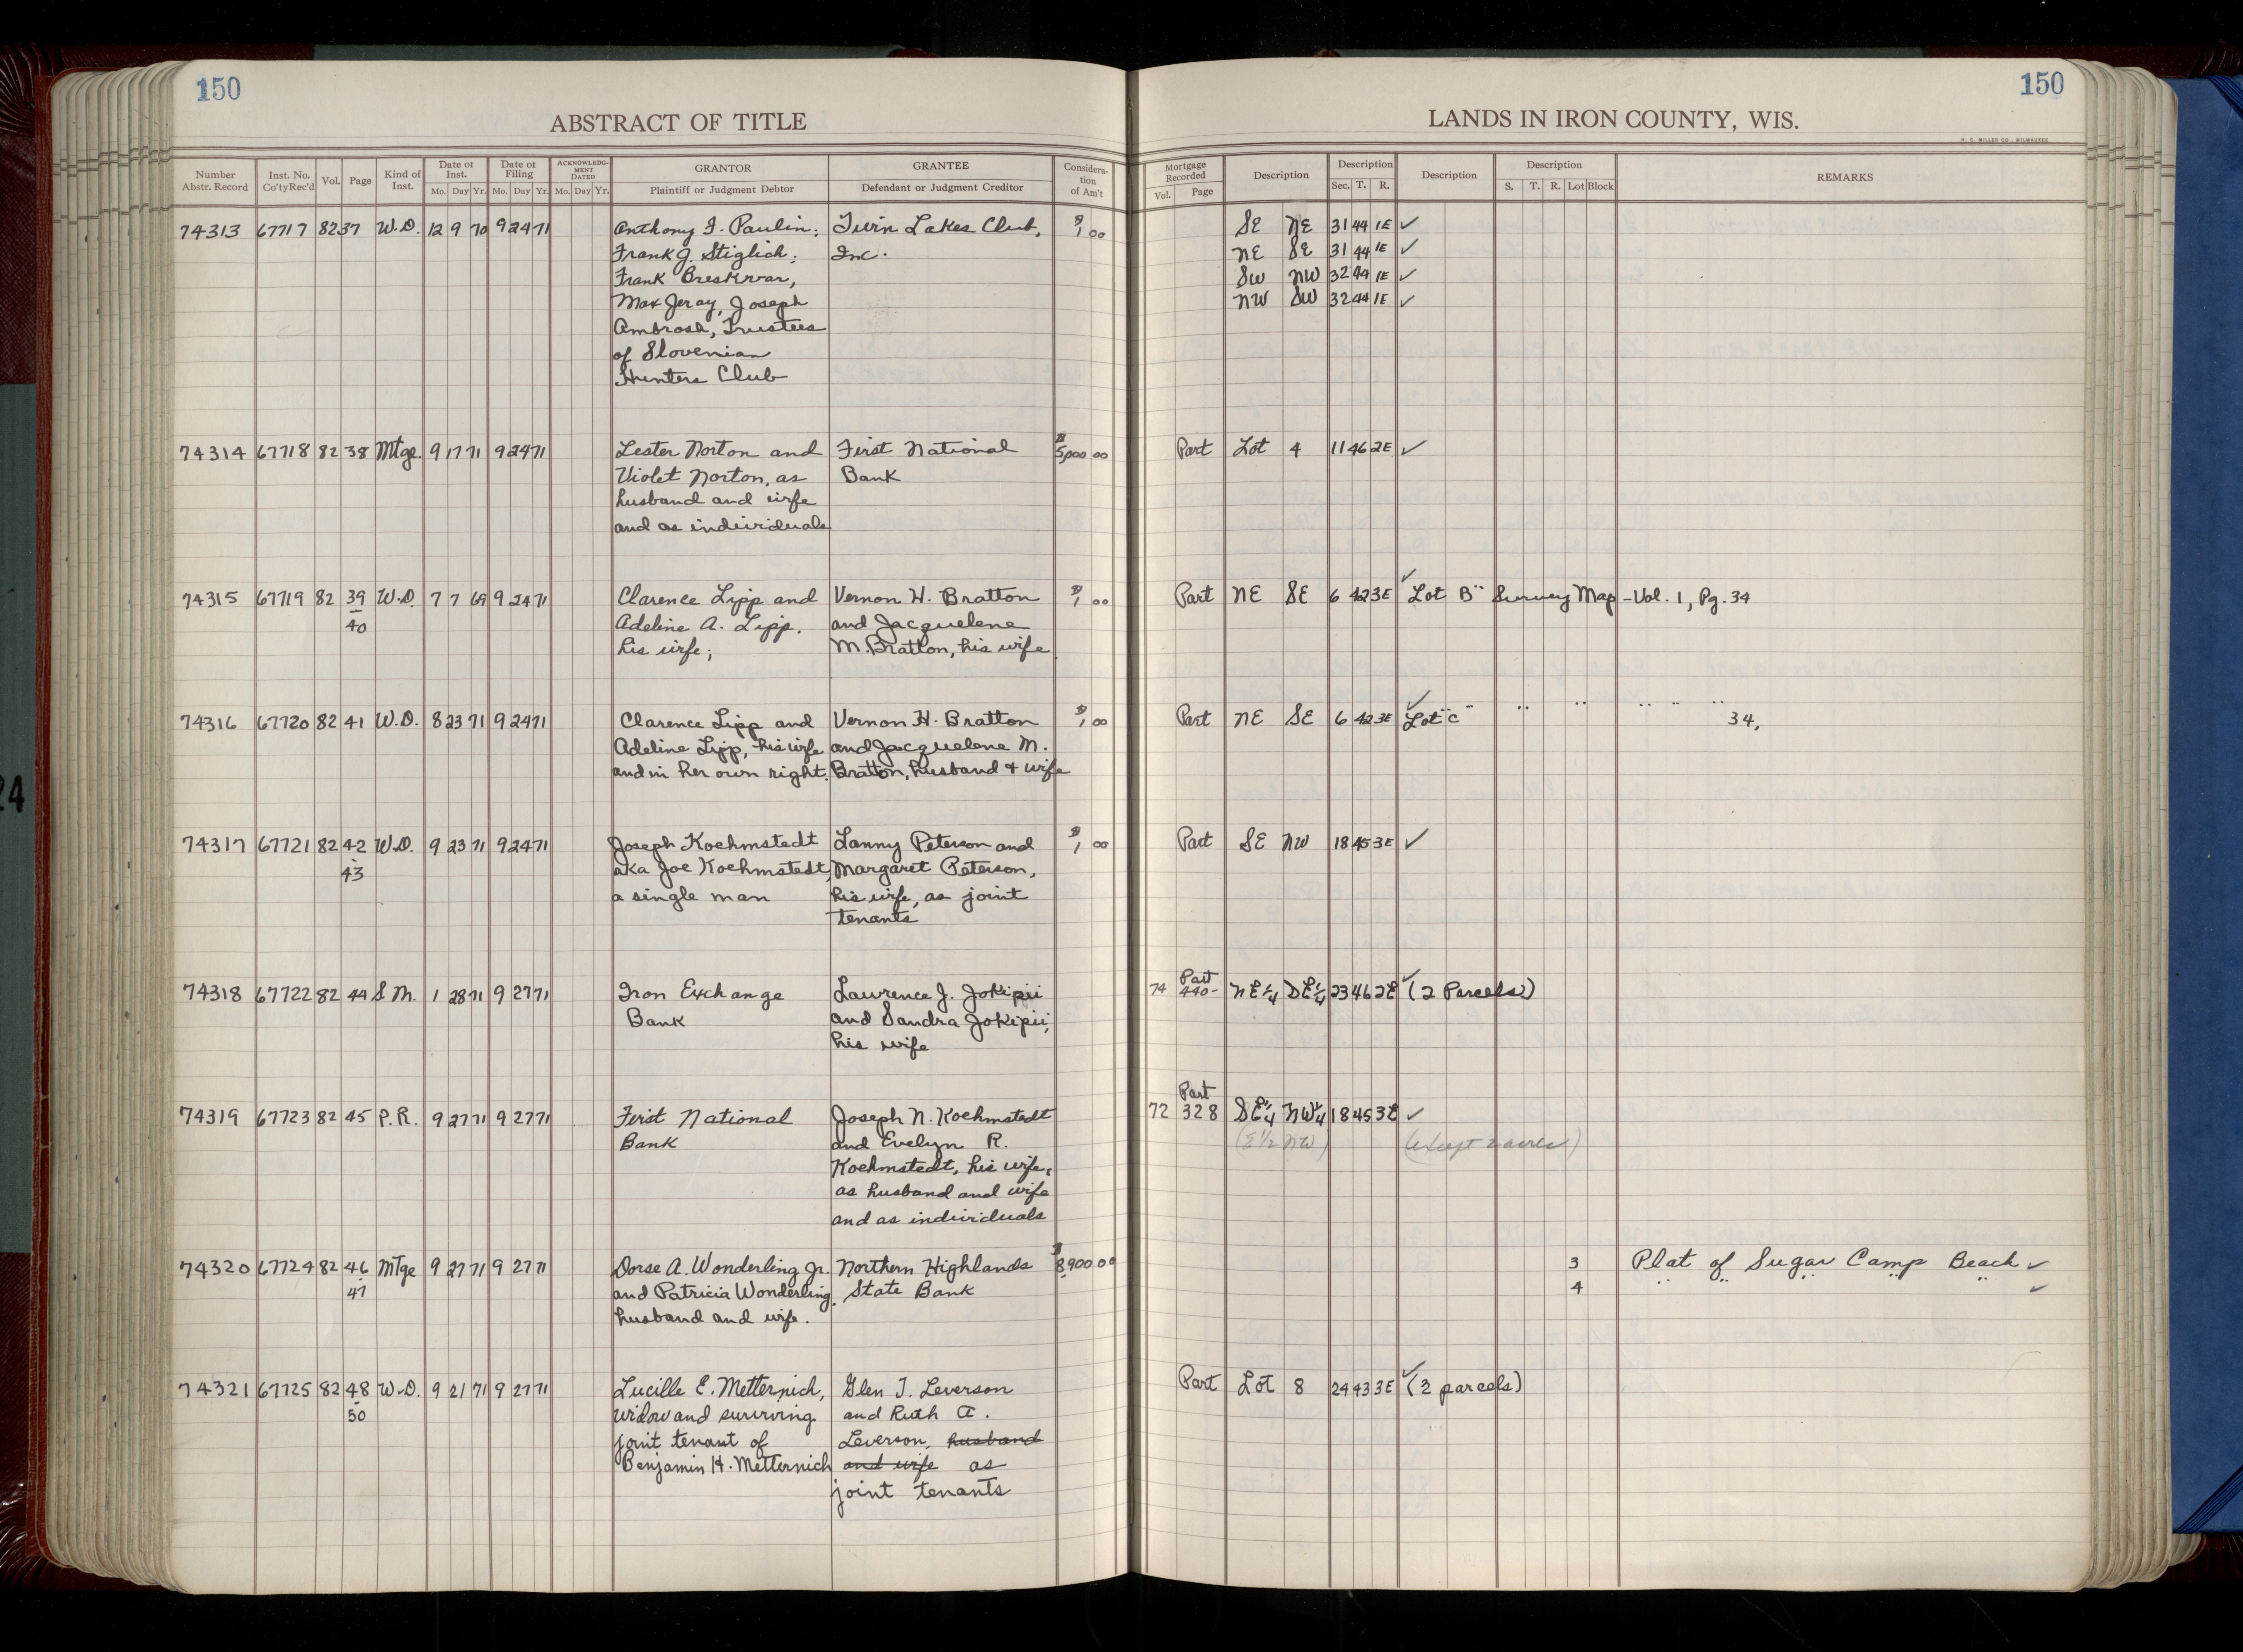 150
ABSTRACT OF TITLE
Number Abstr. Record | Inst. No. Co'ty Rec'd | Vol. | Page | Kind of Inst. | Date of Inst. Mo. Day Yr. | Date of Filing Mo. Day Yr. | ACKNOWLEDGMENT DATED Mo. Day Yr. | GRANTOR Plaintiff or Judgment Debtor | GRANTEE Defendant or Judgment Creditor | Consideration of Am't
74313 67717 82 37 W.D. 12 9 70 9 24 71 Anthony F. Paulin; Twin Lakes Club, $1 00
Frank J. Stiglich; Inc.
Frank Breskvar,
Max Jeray, Joseph
Ambrosh, Trustees
of Slovenian
Hunters Club
74314 67718 82 38 Mtge. 9 17 71 9 24 71 Lester Norton and First National $5,000 00
Violet Norton, as Bank
husband and wife
and as individuals
74315 67719 82 39 W.D. 7 7 69 9 24 71 Clarence Lipp and Vernon H. Bratton $1 00
40 Adeline A. Lipp, and Jacquelene
his wife; M. Bratton, his wife
74316 67720 82 41 W.D. 8 23 71 9 24 71 Clarence Lipp and Vernon H. Bratton $1 00
Adeline Lipp, his wife and Jacquelene M.
and in her own right. Bratton, husband & wife
74317 67721 82 42 W.D. 9 23 71 9 24 71 Joseph Koehmstedt Lanny Peterson and $1 00
43 aka Joe Koehmstedt, Margaret Peterson,
a single man his wife, as joint
tenants
74318 67722 82 44 S.M. 1 28 71 9 27 71 Iron Exchange Lawrence J. Jokipii
Bank and Sandra Jokipii,
his wife
74319 67723 82 45 P.R. 9 27 71 9 27 71 First National Joseph N. Koehmstedt
Bank and Evelyn R.
Koehmstedt, his wife,
as husband and wife
and as individuals
74320 67724 82 46 Mtge 9 27 71 9 27 71 Dorse A. Wonderling Jr. Northern Highlands $8,900 00
47 and Patricia Wonderling, State Bank
husband and wife.
74321 67725 82 48 W.D. 9 21 71 9 27 71 Lucille E. Metternich, Glen T. Leverson
50 widow and surviving and Ruth A.
joint tenant of Leverson, husband
Benjamin H. Metternich and wife as
joint tenants
150
LANDS IN IRON COUNTY, WIS.
H. C. MILLER CO., MILWAUKEE
Mortgage Recorded Vol. Page | Description | Description Sec. T. R. | Description | Description S. T. R. Lot Block | REMARKS
SE NE 31 44 1E ✓
NE SE 31 44 1E ✓
SW NW 32 44 1E ✓
NW SW 32 44 1E ✓
Part Lot 4 11 46 2E ✓
Part NE SE 6 42 3E ✓ Lot B" Survey Map - Vol. 1, Pg. 34
Part NE SE 6 42 3E ✓ Lot "C" " " " " " 34,
Part SE NW 18 45 3E ✓
74 Part 440- NE¼ SE¼ 23 46 2E ✓ (2 Parcels)
Part
72 328 SE¼ NW¼ 18 45 3E ✓
(E½ NW) (except 2 acres)
3 Plat of Sugar Camp Beach ✓
4 " " " " " ✓
Part Lot 8 24 43 3E ✓ (2 parcels)
24